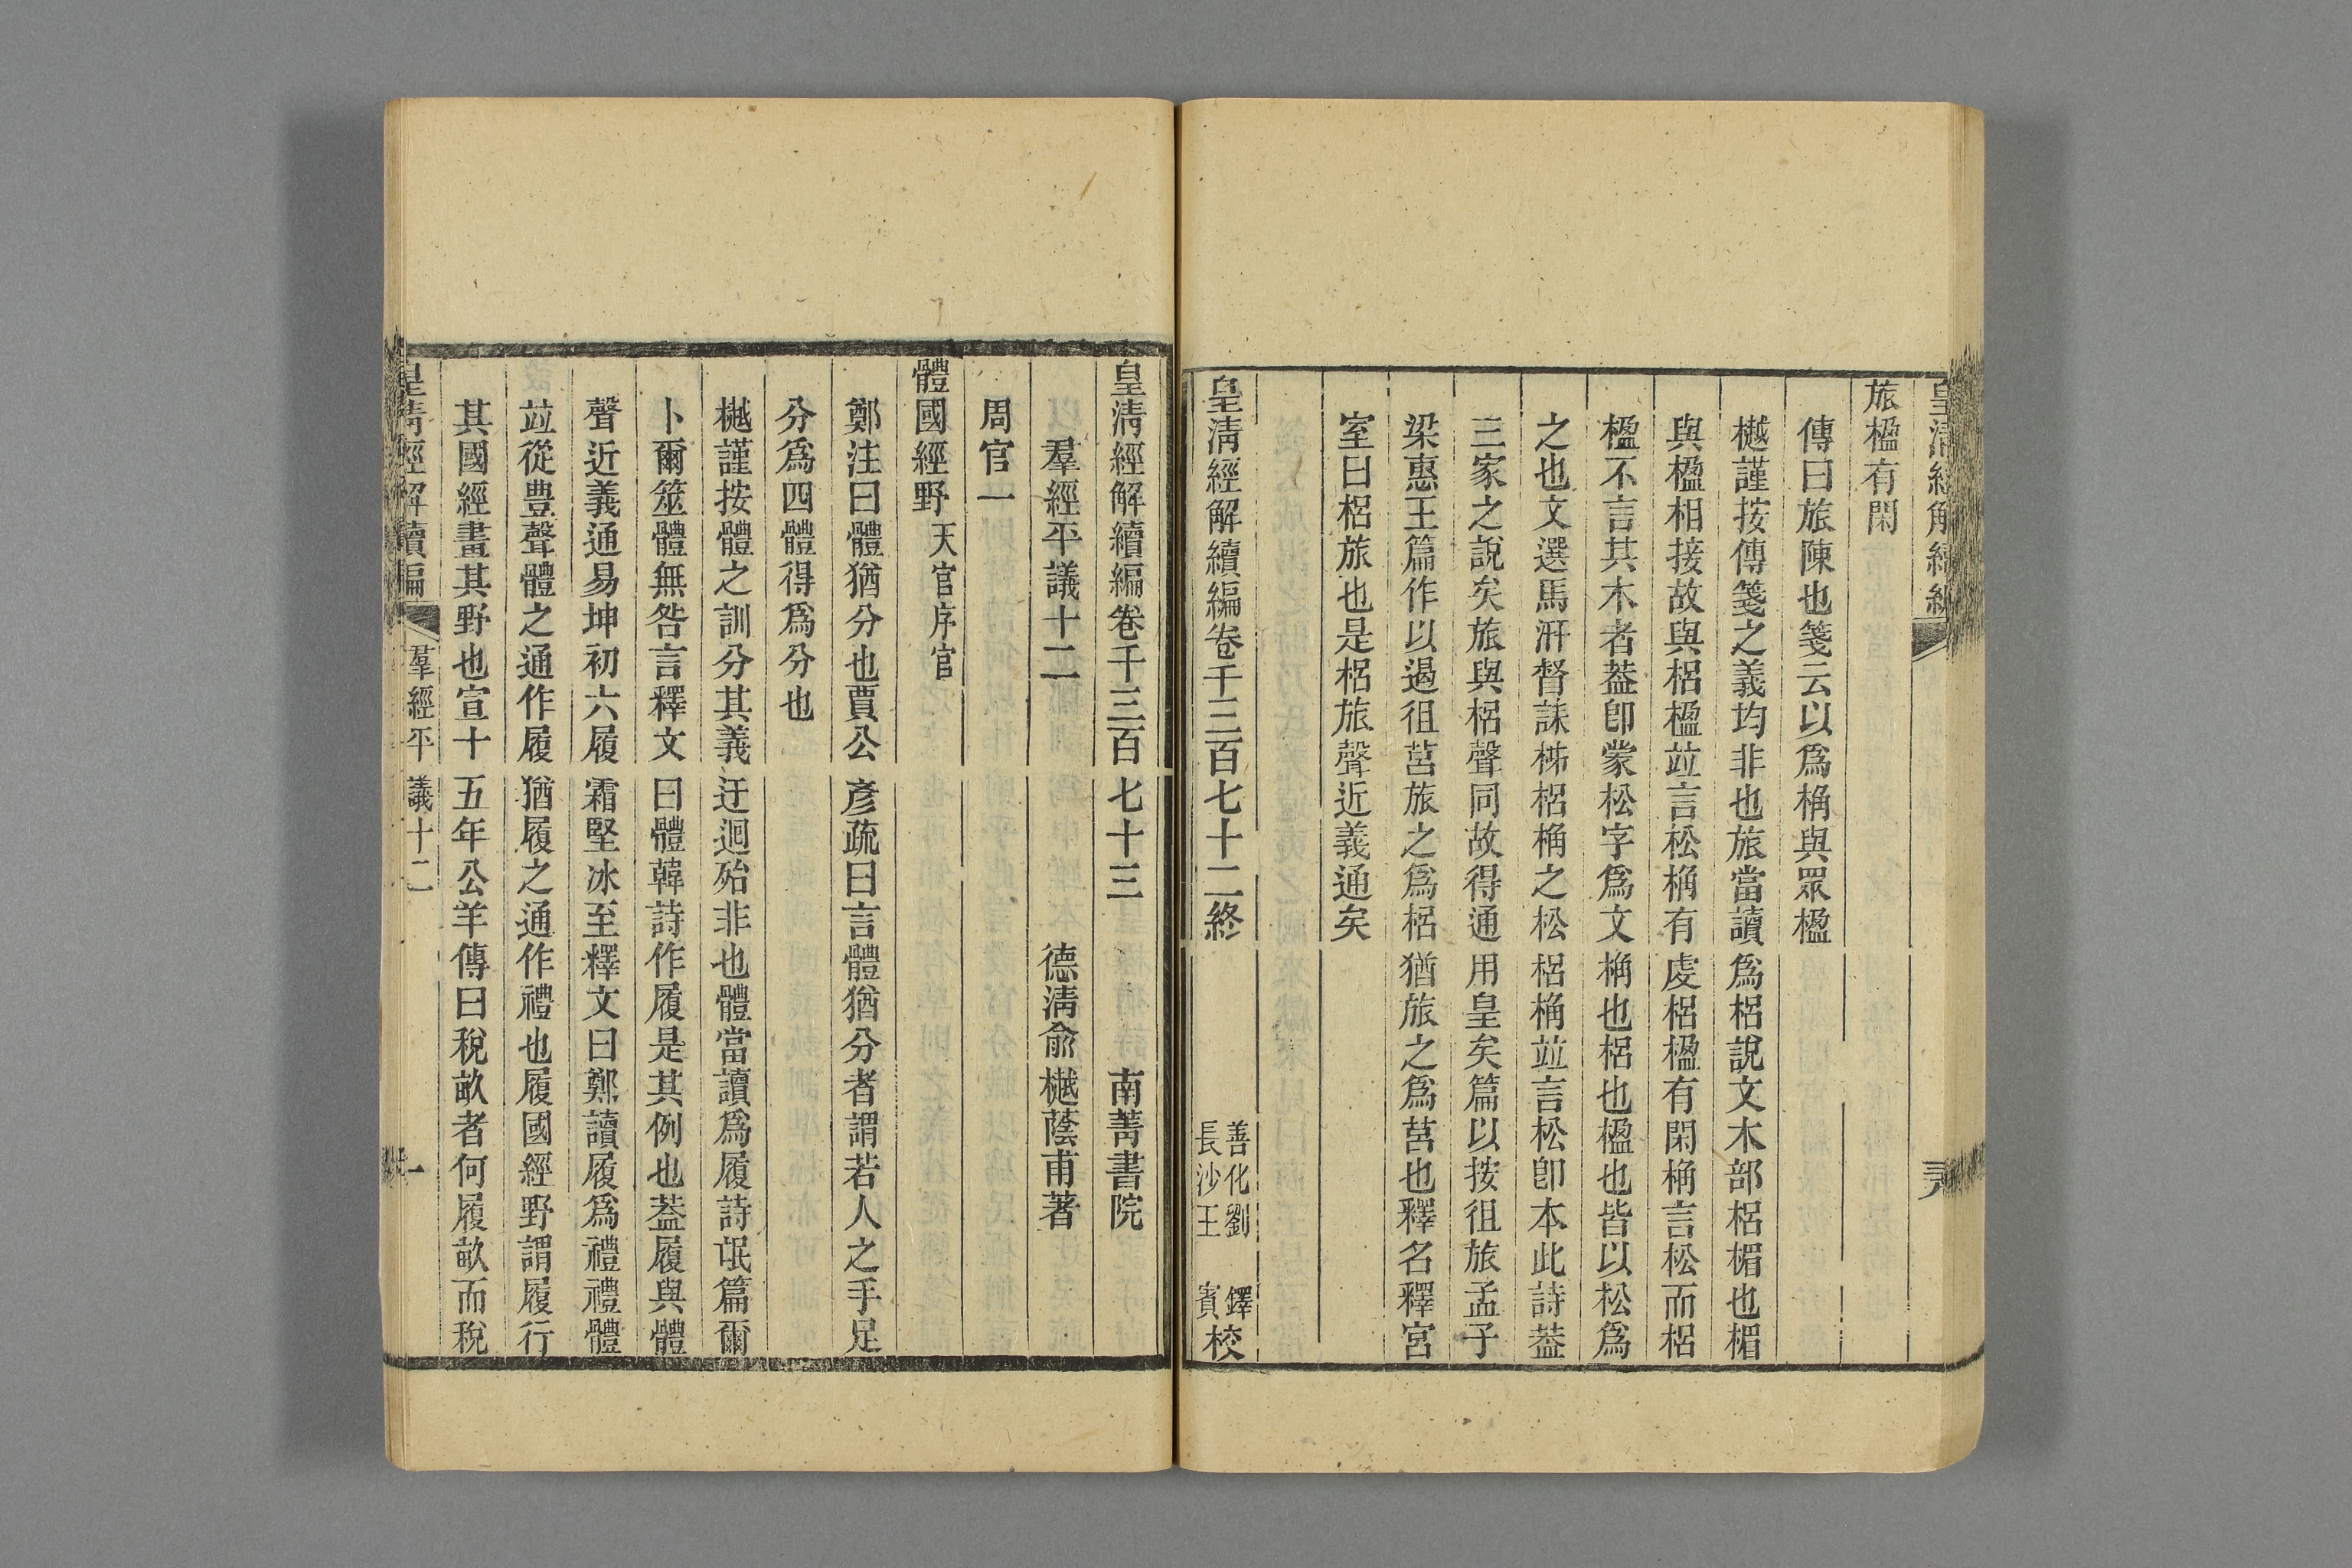 皇清經解續編
旅楹有閑
傳曰旅陳也箋云以爲桷與眾楹
樾謹按傳箋之義均非也旅當讀爲梠說文木部梠楣也楣
與楹相接故與梠楹竝言松桷有虔梠楹有閑桷言松而梠
楹不言其木者葢卽蒙松字爲文桷也梠也楹也皆以松爲
之也文選馬汧督誄柹梠桷之松梠桷竝言松卽本此詩葢
三家之說矣旅與梠聲同故得通用皇矣篇以按徂旅孟子
梁惠王篇作以遏徂莒旅之爲梠猶旅之爲莒也釋名釋宮
室曰梠旅也是梠旅聲近義通矣
皇淸經解續編卷千三百七十二終
善化劉鐸
長沙王賓校
皇淸經解續編卷千三百七十三 南菁書院
羣經平議十二 德淸俞樾蔭甫著
周官一
體國經野 天官序官
鄭注曰體猶分也賈公彥疏曰言體猶分者謂若人之手足
分爲四體得爲分也
樾謹按體之訓分其義迂迴殆非也體當讀爲履詩氓篇爾
卜爾筮體無咎言釋文曰體韓詩作履是其例也葢履與體
聲近義通易坤初六履霜堅冰至釋文曰鄭讀履爲禮禮體
竝從豊聲體之通作履猶履之通作禮也履國經野謂履行
其國經畫其野也宣十五年公羊傳曰稅畝者何履畝而稅
皇淸經解續編 羣經平議十二 一